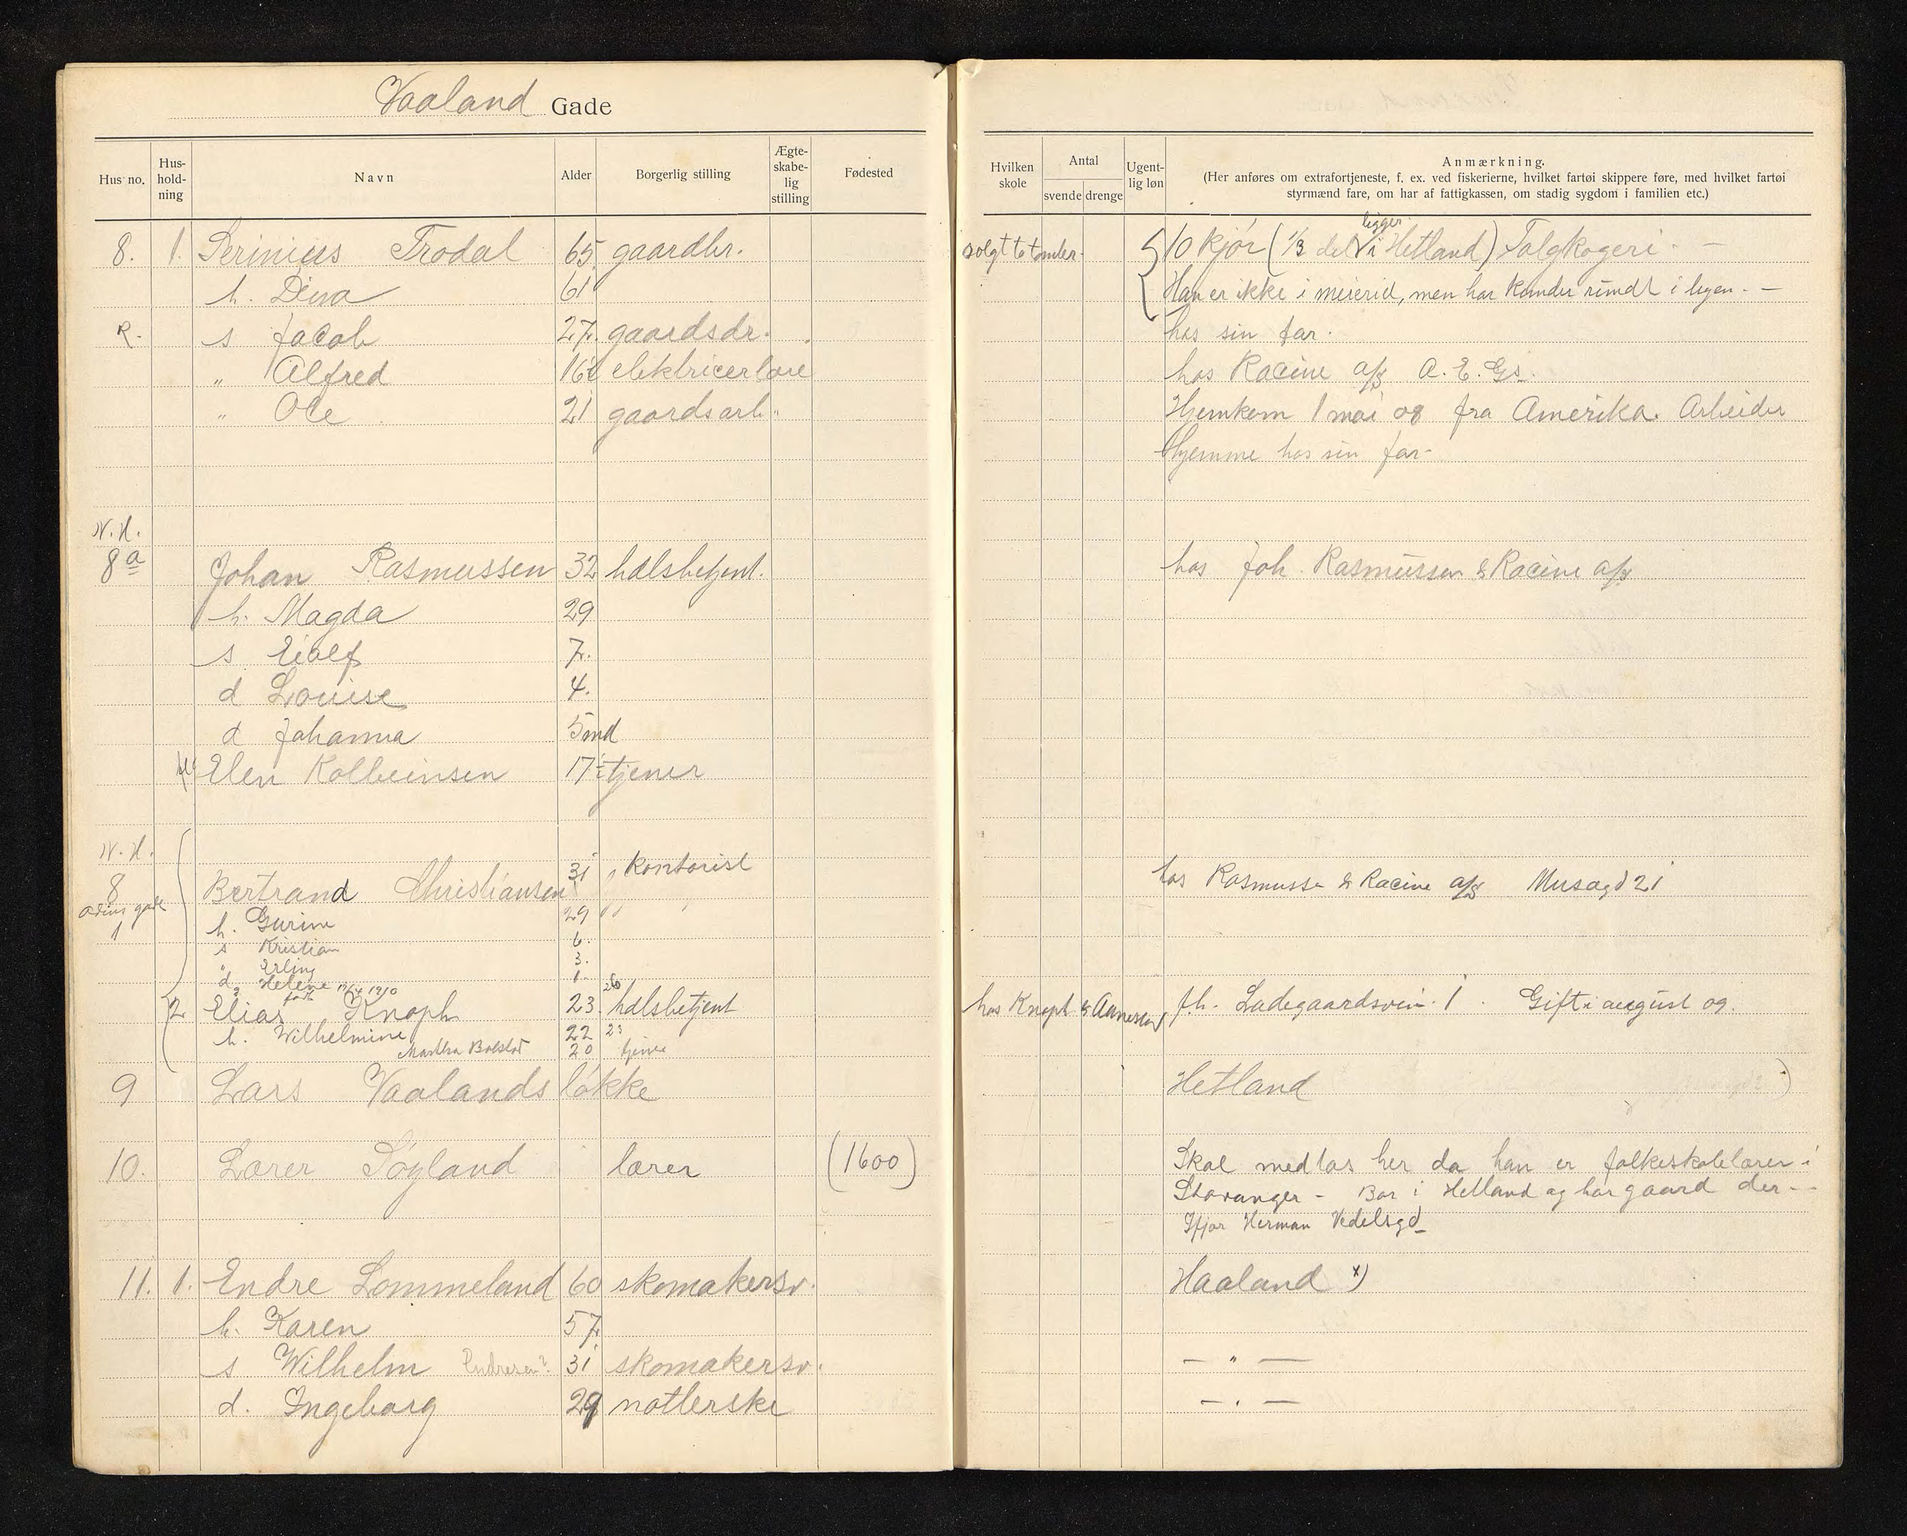 Vaaland Gade
Hus no.
Hus-hold-ning
Navn
Alder
Borgerlig stilling
Ægte-skabe-lig stilling
Fødested
Hvilken skole
Antal
svende drenge
Ugent-lig løn
Anmærkning.
(Her anføres om extrafortjeneste, f. ex. ved fiskerierne, hvilket fartøi skippere føre, med hvilket fartøi
styrmænd fare, om har af fattigkassen, om stadig sygdom i familien etc.)
8. 1. Serinius Trodal 65 gaardbr. solgt to tomter. 10 kjør (1/3 del ligger i Hetland) Talgkogeri
h. Dina 61 Han er ikke i meierid, men har kunder rundt i byen. -
R. s Jacob 27. gaardsdr. hos sin far.
" Alfred 16 elektricerlære hos Racine a/s A. E. Gs.
" Ole 21 gaardsarb. Hjemkom 1 mai 08 fra Amerika. Arbeider
hjemme hos sin far -
N. H.
8a Johan Rasmussen 32 hdlsbetjent. hos Joh. Rasmussen & Racine a/s
h. Magda 29
s Eiolf 7.
d Louise 4.
d Johanna 5 md
Elen Kolbeinsen 17 tjener
N. H.
8 Bertrand Christiansen 31 kontorist hos Rasmusse & Racine a/s Musægd 21
Odins gade 1
h. Gurine 29
s Kristian 6.
" Erling 3.
d. Helene født 1910 1.
2 Elias Knoph 23 26 hdlsbetjent hos Knoph & f.h. Ladegaardsvein. 1. Gift i august 09.
h. Wilhelmine 22 23
Martha Bolstad 20 tjener
9 Lars Vaalands løkke Hetland
10. Lærer Søyland lærer (1600) Skal medtas her da han er folkeskolelærer i
Stavanger - Bor i Hetland og har gaard der -
Ifjor Herman Vedelsgd
11. 1. Endre Lommeland 60 skomakersv. Haaland x)
h. Karen 57.
s Wilhelm Endresen? 31 skomakersv. - " -
d. Ingeborg 29 notlerske - " -